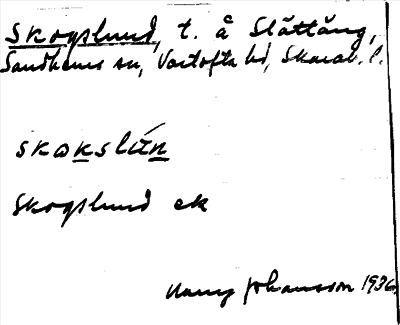 Skogslund, t. å Slättäng,
Sandhems sn, Vartofta hd, Skarab. l.
skωkslún
Skogslund ek
Nanny Johansson 1936.